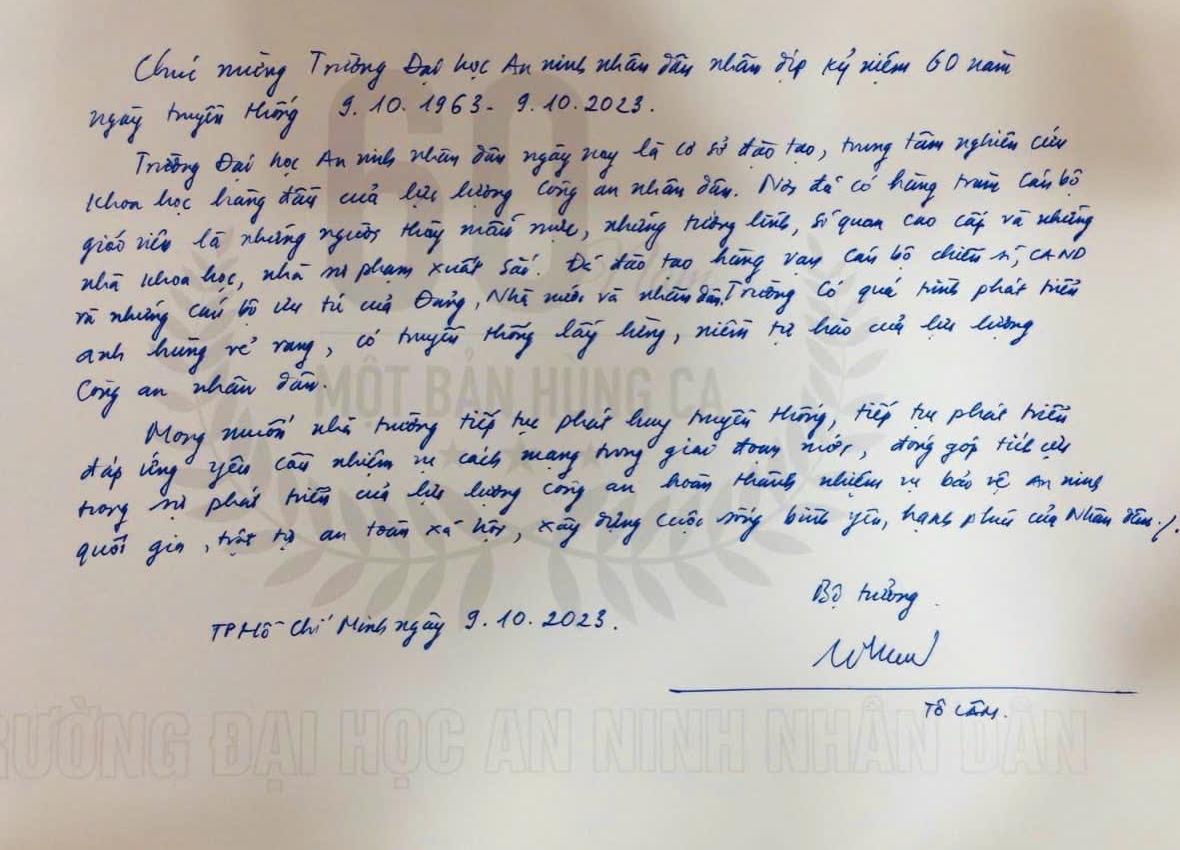 Chúc mừng Trường Đại học An ninh nhân dân nhân dịp kỷ niệm 60 năm
ngày truyền thống 9.10.1963 - 9.10.2023.
Trường Đại học An ninh nhân dân ngày nay là cơ sở đào tạo, trung tâm nghiên cứu
khoa học hàng đầu của lực lượng Công an nhân dân. Nơi đã có hàng trăm cán bộ
giáo viên là những người thầy mẫu mực, những tướng lĩnh, sĩ quan cao cấp và những
nhà khoa học, nhà sư phạm xuất sắc. Đã đào tạo hàng vạn cán bộ chiến sĩ, CAND
và những cán bộ ưu tú của Đảng, Nhà nước và nhân dân. Trường có quá trình phát triển
anh hùng vẻ vang, có truyền thống lẫy lừng, niềm tự hào của lực lượng
Công an nhân dân.
Mong muốn nhà trường tiếp tục phát huy truyền thống, tiếp tục phát triển
đáp ứng yêu cầu nhiệm vụ cách mạng trong giai đoạn mới, đóng góp tích cực
trong sự phát triển của lực lượng công an hoàn thành nhiệm vụ bảo vệ An ninh
quốc gia, trật tự an toàn xã hội, xây dựng cuộc sống bình yên, hạnh phúc của Nhân dân./.
TP Hồ Chí Minh ngày 9.10.2023.
Bộ trưởng.
Tô Lâm.
60
Năm
MỘT BẢN HÙNG CA
TRƯỜNG ĐẠI HỌC AN NINH NHÂN DÂN